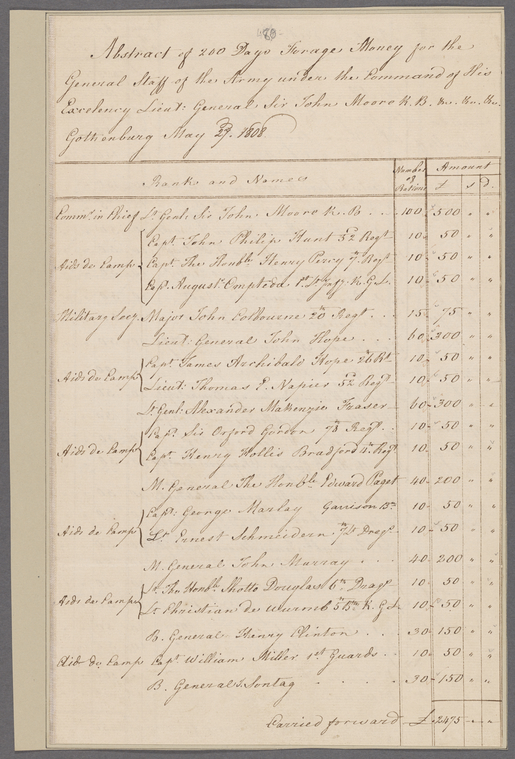 Abstract of 200 Days Forage Money for the
General Staff of the Army under the Command of His
Excelency Lieut: General Sir John Moore K. B. &c. &c. &c.
Gothenburg May 29. 1808
Ranks and Names Number of Rations Amount £ s D
Comm. in Chief Lt. Genl. Sir John Moore K. B. . . 100 £ 500 " "
Aids de Camp Capt. John Philip Hunt 52 Regt 10 50 " "
Capt. The Honble. Henry Percy 7. Regt 10 50 " "
Cap. August. Ompteda 1st K. G. L. 10 50 " "
Military Secy. Major John Colbourne 20 Regt. . . 15 75 " "
Lieut: General John Hope . . . 60 300 " "
Aids de Camp Capt James Archibald Hope 26 Rt. 10 50 " "
Lieut: Thomas E. Napier 52 Regt 10 50 " "
Lt. Genl. Alexander MaKenzie Fraser 60 300 " "
Aids de Camp Cap. Sir Orford Gordon 78 Regt. . . 10 50 " "
Capt. Henry Hollis Bradford 11 Regt 10 50 " "
M. General The Honble. Edward Paget 40 200 " "
Aids de Camp Capt. George Marlay Garrison Bn 10 50 " "
Lt. Ernest Schmeidern 7 Drags. 10 50 " "
M. General John Murray . . . 40 200 " "
Aids de Camp Lt. The Honble. Sholto Douglas 6th Drags 10 50 " "
Lt Christian de Wurmb 5 Bn K. G. L. 10 50 " "
B. General Henry Clinton . . . 30 150 " "
Aid de Camp Capt. William Miller 1st Guards . . 10 50 " "
B. General Sontag . . . . . 30 150 " "
Carried forward £ 2475 " "